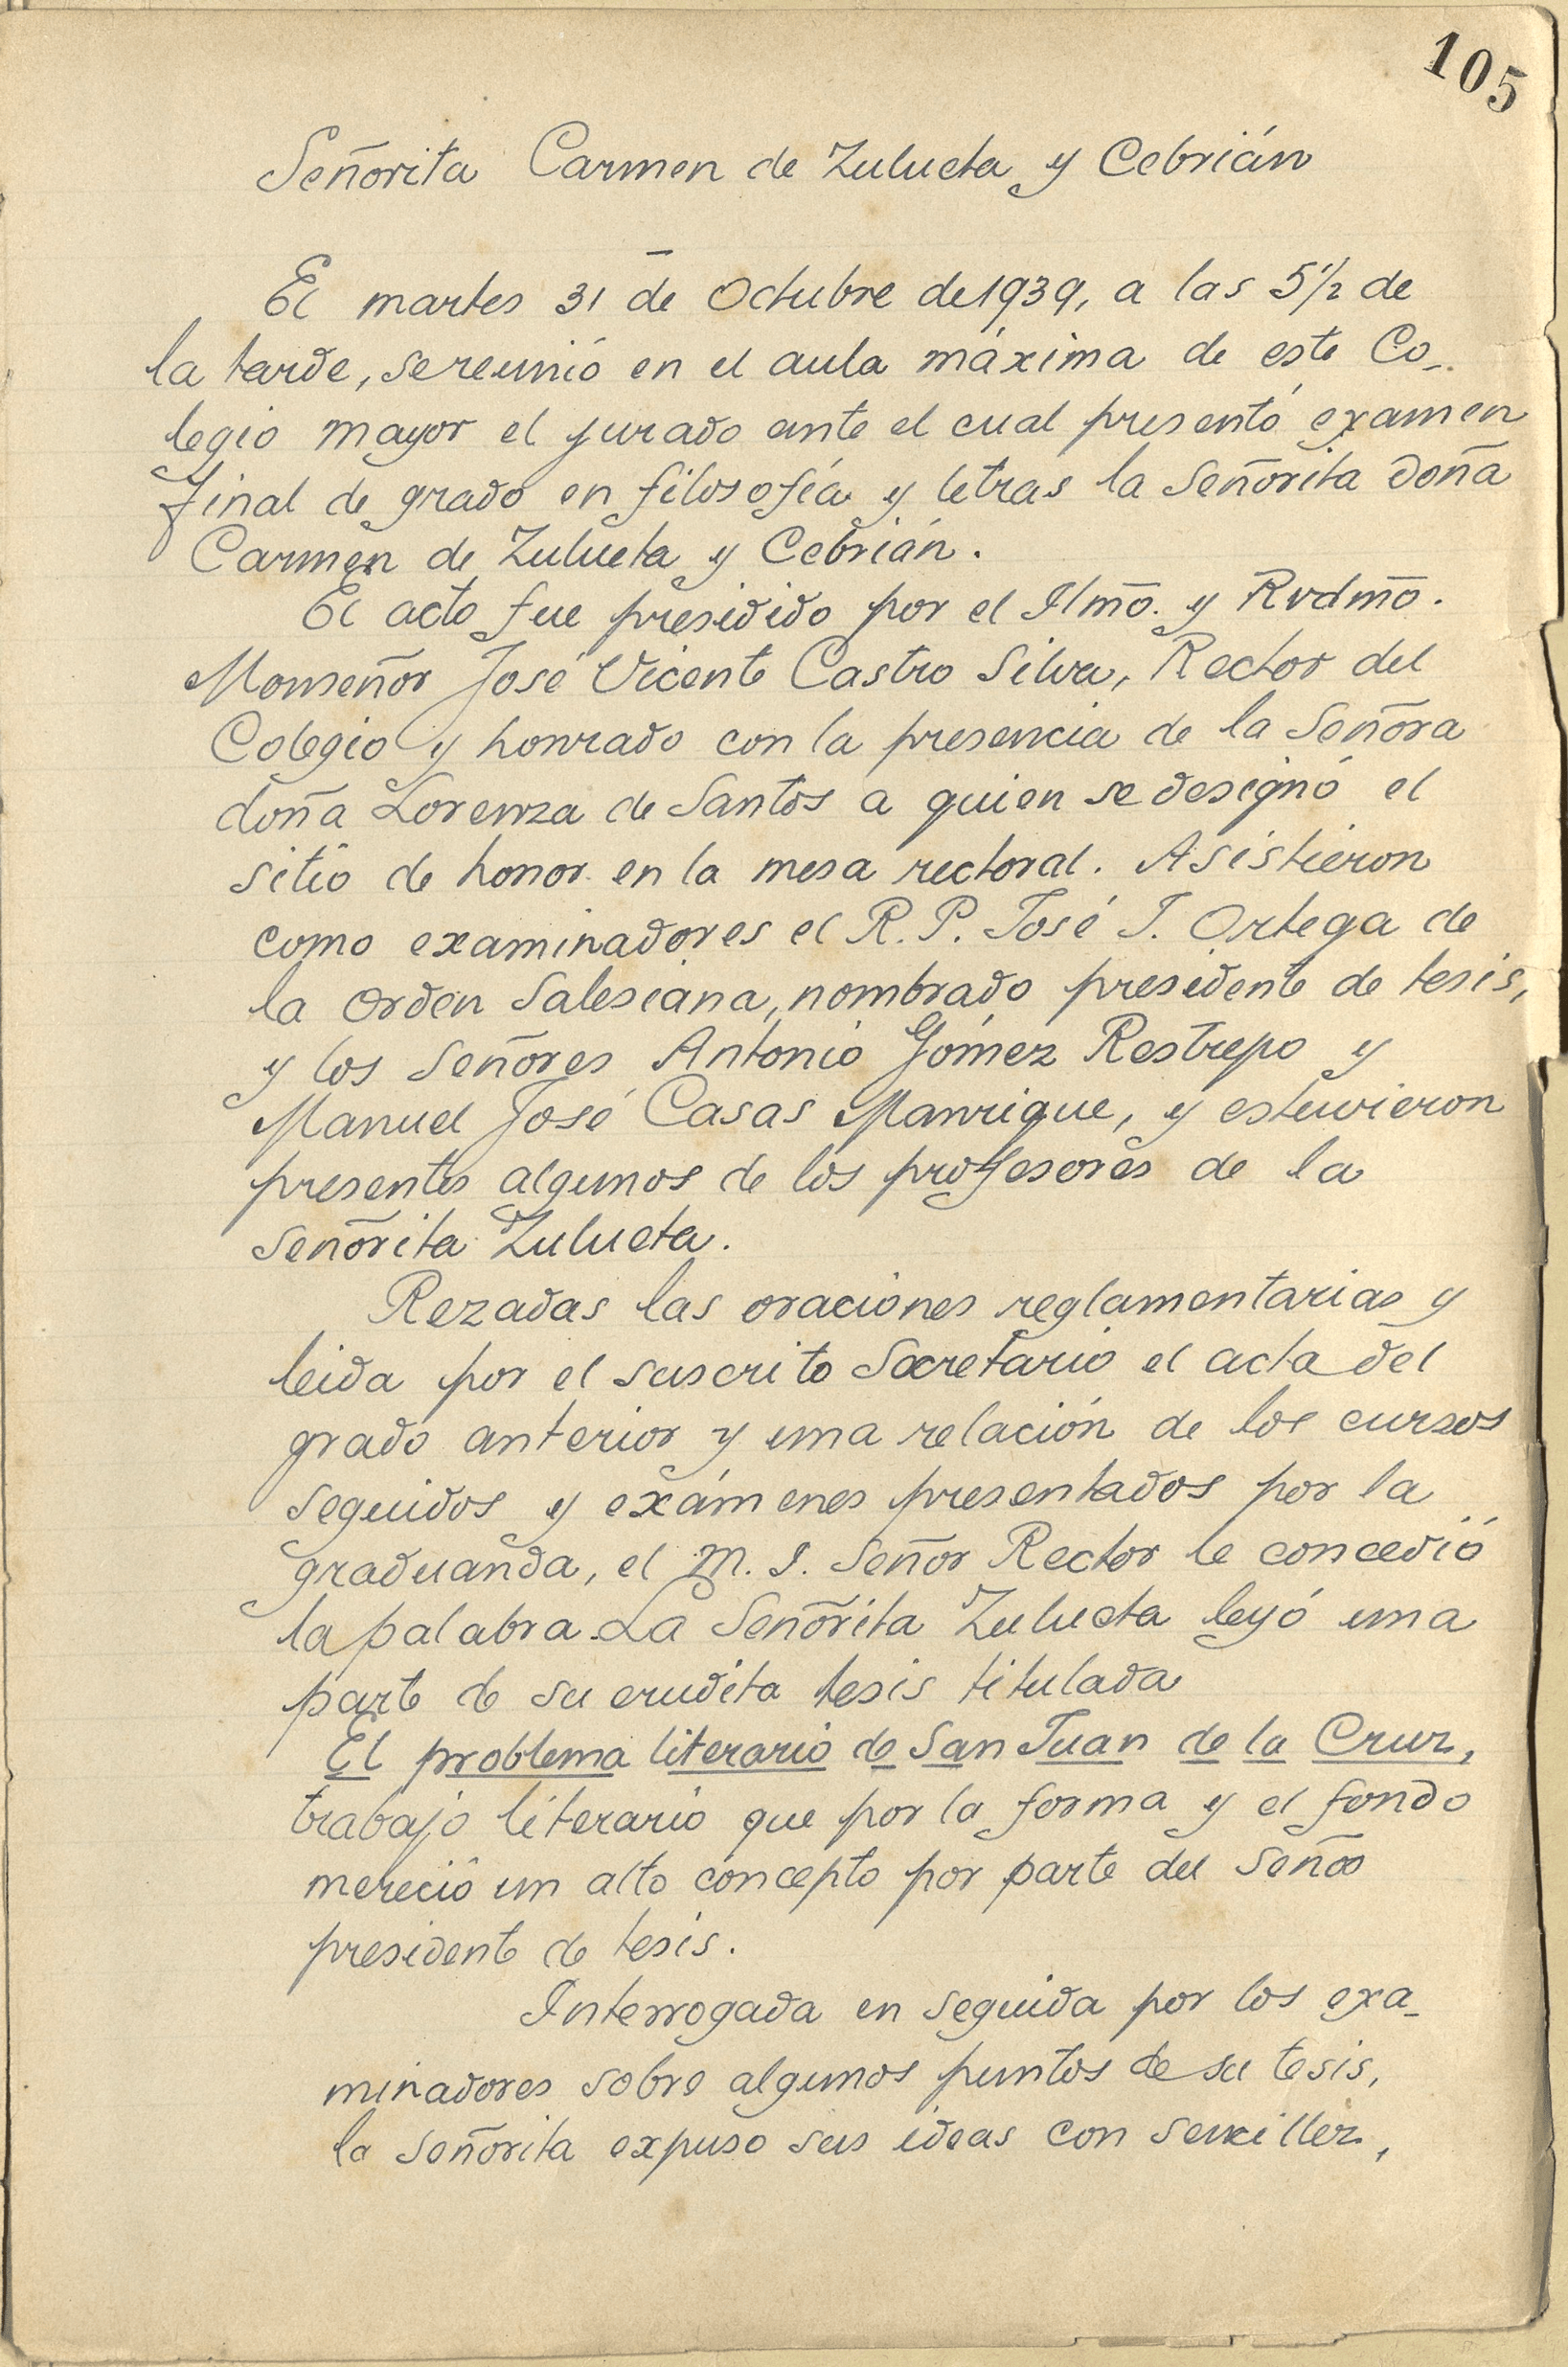 105
Señorita Carmen de Zulueta y Cebrián
El martes 31 de Octubre de 1939, a las 5 1/2 de
la tarde, se reunió en el aula máxima de este Co-
legio mayor el jurado ante el cual presentó examen
final de grado en filosofía y letras la Señorita doña
Carmen de Zulueta y Cebrián.
El acto fue presidido por el Ilmo. y Rvdmo.
Monseñor José Vicente Castro Silva, Rector del
Colegio y honrado con la presencia de la Señora
doña Lorenza de Santos a quien se designó el
sitio de honor en la mesa rectoral. Asistieron
como examinadores el R. P. José J. Ortega de
la Orden Salesiana, nombrado presidente de tesis,
y los Señores Antonio Gómez Restrepo y
Manuel José Casas Manrique, y estuvieron
presentes algunos de los profesores de la
Señorita Zulueta.
Rezadas las oraciones reglamentarias y
leida por el suscrito Secretario el acta del
grado anterior y una relación de los cursos
seguidos y exámenes presentados por la
graduanda, el M. I. Señor Rector le concedió
la palabra. La Señorita Zulueta leyó una
parte de su erudita tesis titulada
El problema literario de San Juan de la Cruz,
trabajo literario que por la forma y el fondo
mereció un alto concepto por parte del Señor
presidente de tesis.
Interrogada en seguida por los exa-
minadores sobre algunos puntos de su tesis,
la Señorita expuso sus ideas con sencillez,